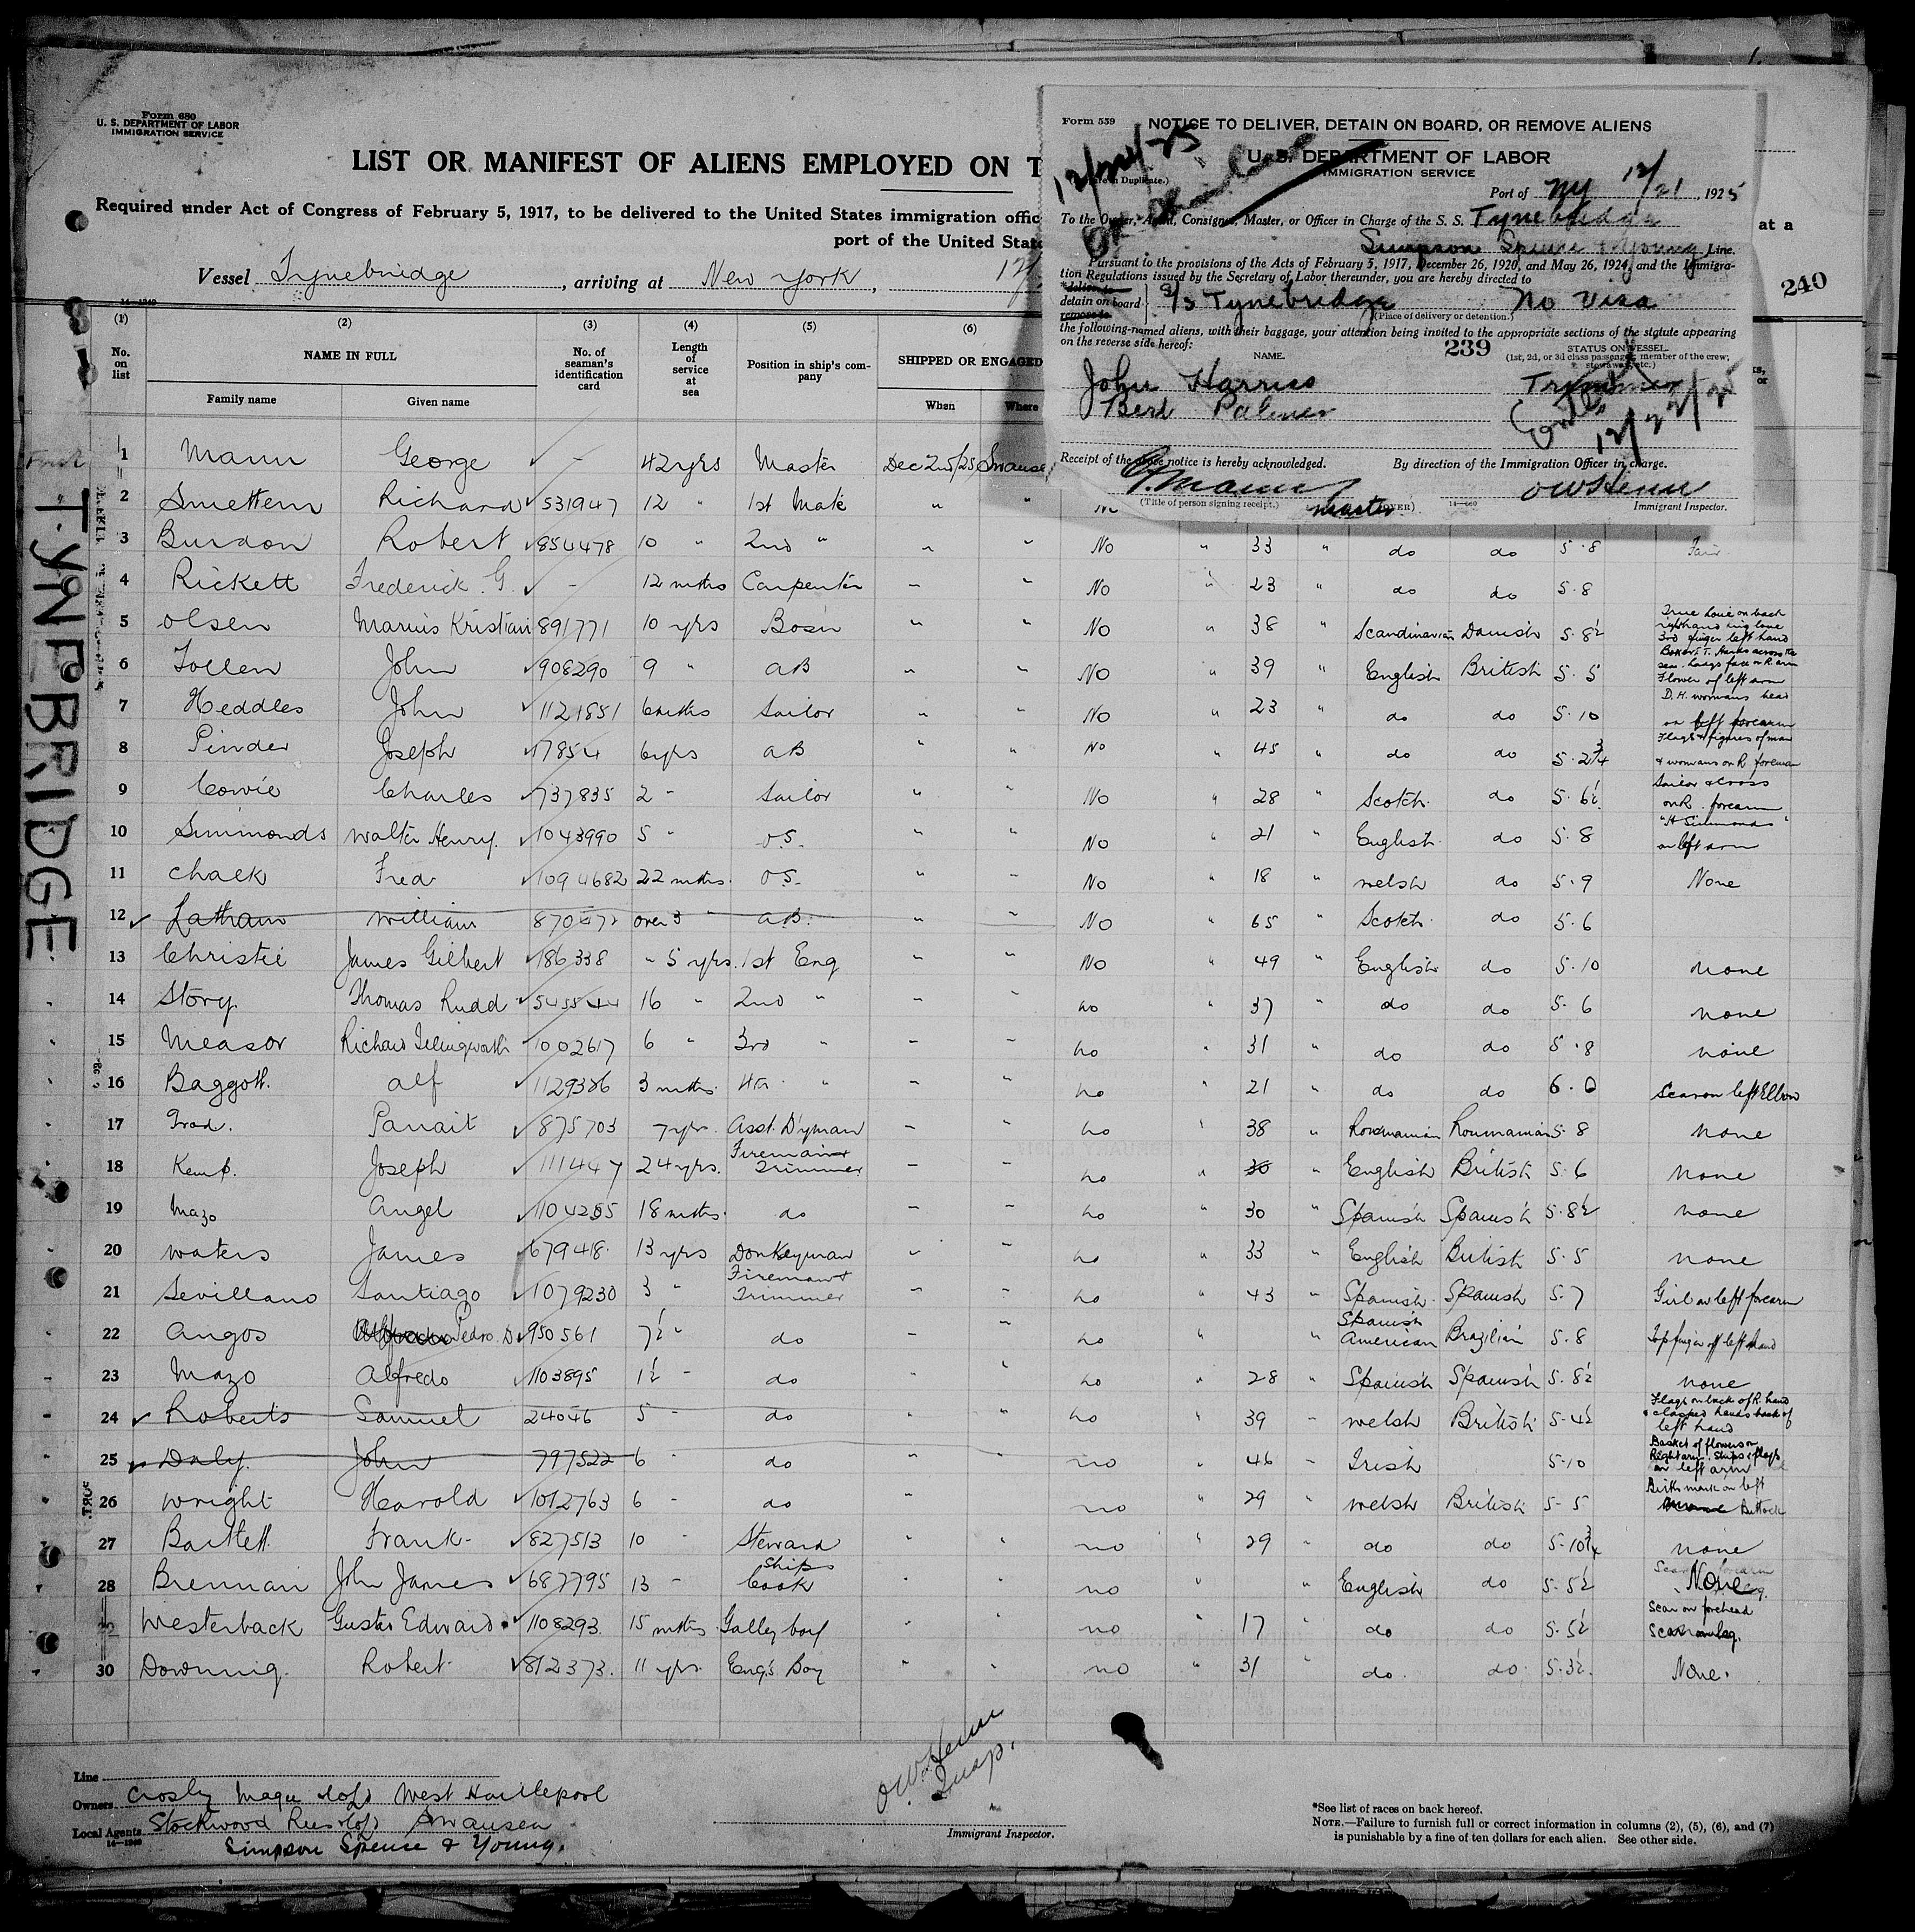 Form 680
U. S. DEPARTMENT OF LABOR
IMMIGRATION SERVICE
LIST OR MANIFEST OF ALIENS EMPLOYED ON T
Required under Act of Congress of February 5, 1917, to be delivered to the United States immigration offic
at a
port of the United Stat
Vessel Tynebridge, arriving at New York,
240
Form 559
NOTICE TO DELIVER, DETAIN ON BOARD, OR REMOVE ALIENS
U. S. DEPARTMENT OF LABOR
IMMIGRATION SERVICE
Port of NY 12/21, 1925
To the Owner, Agent, Consignee, Master, or Officer in Charge of the S. S. Tynebridge
Simpson Spence & Young Line.
Pursuant to the provisions of the Acts of February 5, 1917, December 26, 1920, and May 26, 1924, and the Immigra-
tion Regulations issued by the Secretary of Labor thereunder, you are hereby directed to
detain on board S/S Tynebridge No Visa
(Place of delivery or detention.)
the following-named aliens, with their baggage, your attention being invited to the appropriate sections of the statute appearing
on the reverse side hereof:
239
NAME. STATUS ON VESSEL
(1st, 2d, or 3d class passenger, member of the crew, stowaway, etc.)
John Harriss Trimmer
Bert Palmer
12/22/25
Receipt of the above notice is hereby acknowledged. By direction of the Immigration Officer in charge.
G. Mann
(Title of person signing receipt.) Master (OVER) 14—680 Immigrant Inspector.
TYNEBRIDGE
(1) (2) (3) (4) (5) (6)
No. on list NAME IN FULL No. of seaman's identification card Length of service at sea Position in ship's company SHIPPED OR ENGAGED
Family name Given name When Where
1 Mann George - 42 yrs Master Dec 2nd/25 Swansea
2 Smettem Richard 531947 12 " 1st Mate " "
3 Burdon Robert 854478 10 " 2nd " " " No " 33 " do do 5.8 Fair
4 Rickett Frederick. G. - 12 mths Carpenter " " No " 23 " do do 5.8
5 Olsen Marius Kristian 891771 10 yrs Bosn " " No " 38 " Scandinavian Danish 5.8½ True love on back
3rd finger left hand
6 Tollen John 908290 9 " AB " " No " 39 " English British 5.5
Flower of left arm
7 Heddles John 1121851 6 mths Sailor " " No " 23 " do do 5.10 D.H. womans head
on left forearm
8 Pinder Joseph 17854 6 yrs AB " " No " 45 " do do 5.2¾ Flags & figures of man
& womans on R. forearm
9 Cowie Charles 737835 2 " Sailor " " No " 28 " Scotch do 5.6½ Sailor & cross
on R. forearm
10 Simmonds Walter Henry. 1043990 5 " O.S. " " No " 21 " English do 5.8
on left arm
11 Chalk Fred 1094682 22 mths O.S. " " No " 18 " Welsh do 5.9 None
12 Latham William 870672 over 3 " AB. " " No " 65 " Scotch do 5.6
13 Christie James Gilbert 186338 " 5 yrs. 1st Eng " " No " 49 " English do 5.10 none
14 Story. Thomas Rudd 545544 16 " 2nd " " " no " 37 " do do 5.6 none
15 Measor Richard Illingworth 1002617 6 " 3rd " " " no " 31 " do do 5.8 none
16 Baggott. Alf 1129386 3 mths. 4th " " " no " 21 " do do 6.0 Scar on left Elbow
17 Trad. Panait 875703 7 yrs. Asst. D'yman " " no 38 " Roumanian Roumanian 5.8 none
18 Kemp. Joseph 111447 24 yrs. Fireman & Trimmer " " no " 30 " English British 5.6 none
19 Mazo Angel 1104255 18 mths. do " " no " 30 " Spanish Spanish 5.8½ none
20 Waters James 679418 13 yrs Donkeyman " " no " 33 " English British 5.5 none
21 Sevillano Santiago 1079230 3 " Fireman & Trimmer " " no " 43 " Spanish Spanish 5.7 Girl on left forearm
22 Angos Pedro. D 950561 7½ " do " " no " " Spanish American Brazilian 5.8 Top finger off left hand
23 Mazo Alfredo 1103895 1½ " do " " no " 28 " Spanish Spanish 5.8½ none
24 Roberts Samuel 24046 5 " do " " no " 39 " Welsh British 5.4½ Flags on back of R. hand
& clasped hands back of
left hand
25 Daly. John 797522 6 " do " " no " 46 " Irish 5.10 Basket of flowers on
Right arm. Ships & flags
on left arm
26 Wright Harold 1012763 6 " do " no " 29 " Welsh British 5-5 Birth mark on left
Buttock
27 Bartlett. Frank 827513 10 " Steward " " no " 29 " do do 5-10¾ none
28 Brennan John James 687795 13 " Ships Cook " " no " " English do 5-5½ None
29 Westerback Gustav Edward 1108293. 15 mths Galley boy " " no " 17 " do do 5.5½ Scar on forehead
Scar on leg.
30 Downing. Robert 812373. 11 yrs. Eng's Boy " " no " 31 " do. do. 5.3½ None.
O.W. Henn
Insp.
Line
Owners Crosby Magee & Co West Hartlepool
Local Agents Stockwood Rees & Co Swansea
14—1240
Simpson Spence & Young.
Immigrant Inspector.
*See list of races on back hereof.
NOTE.—Failure to furnish full or correct information in columns (2), (5), (6), and (7)
is punishable by a fine of ten dollars for each alien. See other side.